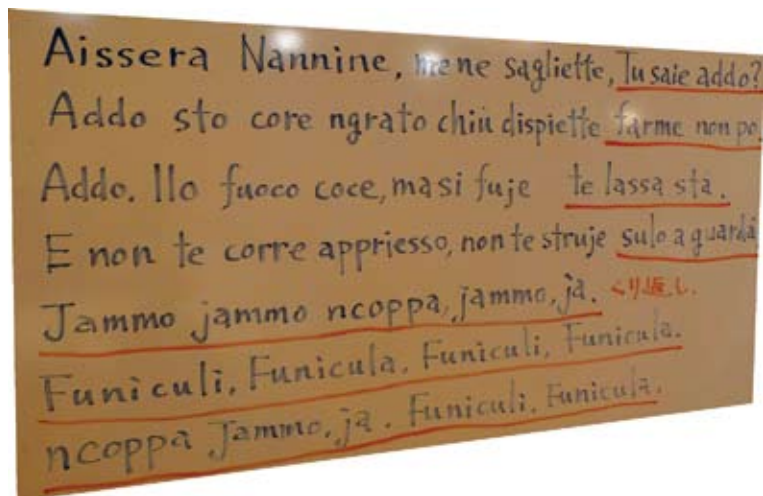 Aissera Nannine, me ne sagliette, Tu saie addo?
Addo sto core ngrato chiu dispiette farme non po.
Addo. llo fuoco coce, ma si fuje te lassa sta.
E non te corre appriesso, non te struje sulo a guardà
Jammo jammo ncoppa, jammo, jà. くり返し.
Funiculì, Funicula, Funiculi, Funicula.
ncoppa Jammo, ja. Funiculi, Funicula.